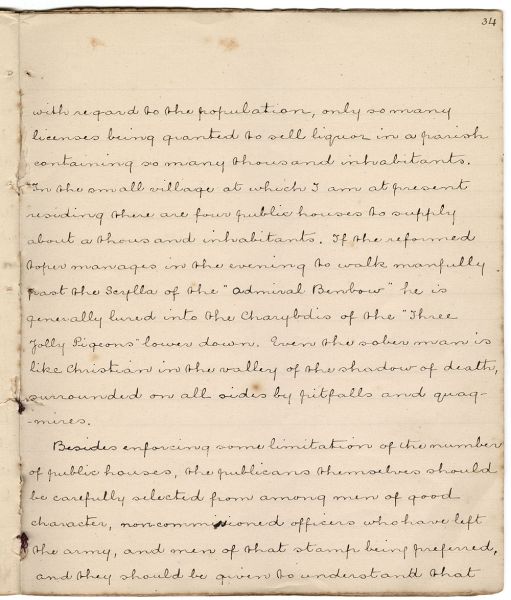 34
with regard to the population, only so many
licenses being granted to sell liquor in a parish
containing so many thousand inhabitants.
In the small village at which I am at present
residing there are four public houses to supply
about a thousand inhabitants. If the reformed
toper manages in the evening to walk manfully
past the Scylla of the "Admiral Benbow" he is
generally lured into the Charybdis of the "Three
Jolly Pigeons" lower down. Even the sober man is
like Christian in the valley of the shadow of death,
surrounded on all sides by pitfalls and quag-
-mires.
Besides enforcing some limitation of the number
of public houses, the publicans themselves should
be carefully selected from among men of good
character, noncommissioned officers who have left
the army, and men of that stamp being preferred,
and they should be given to understand that